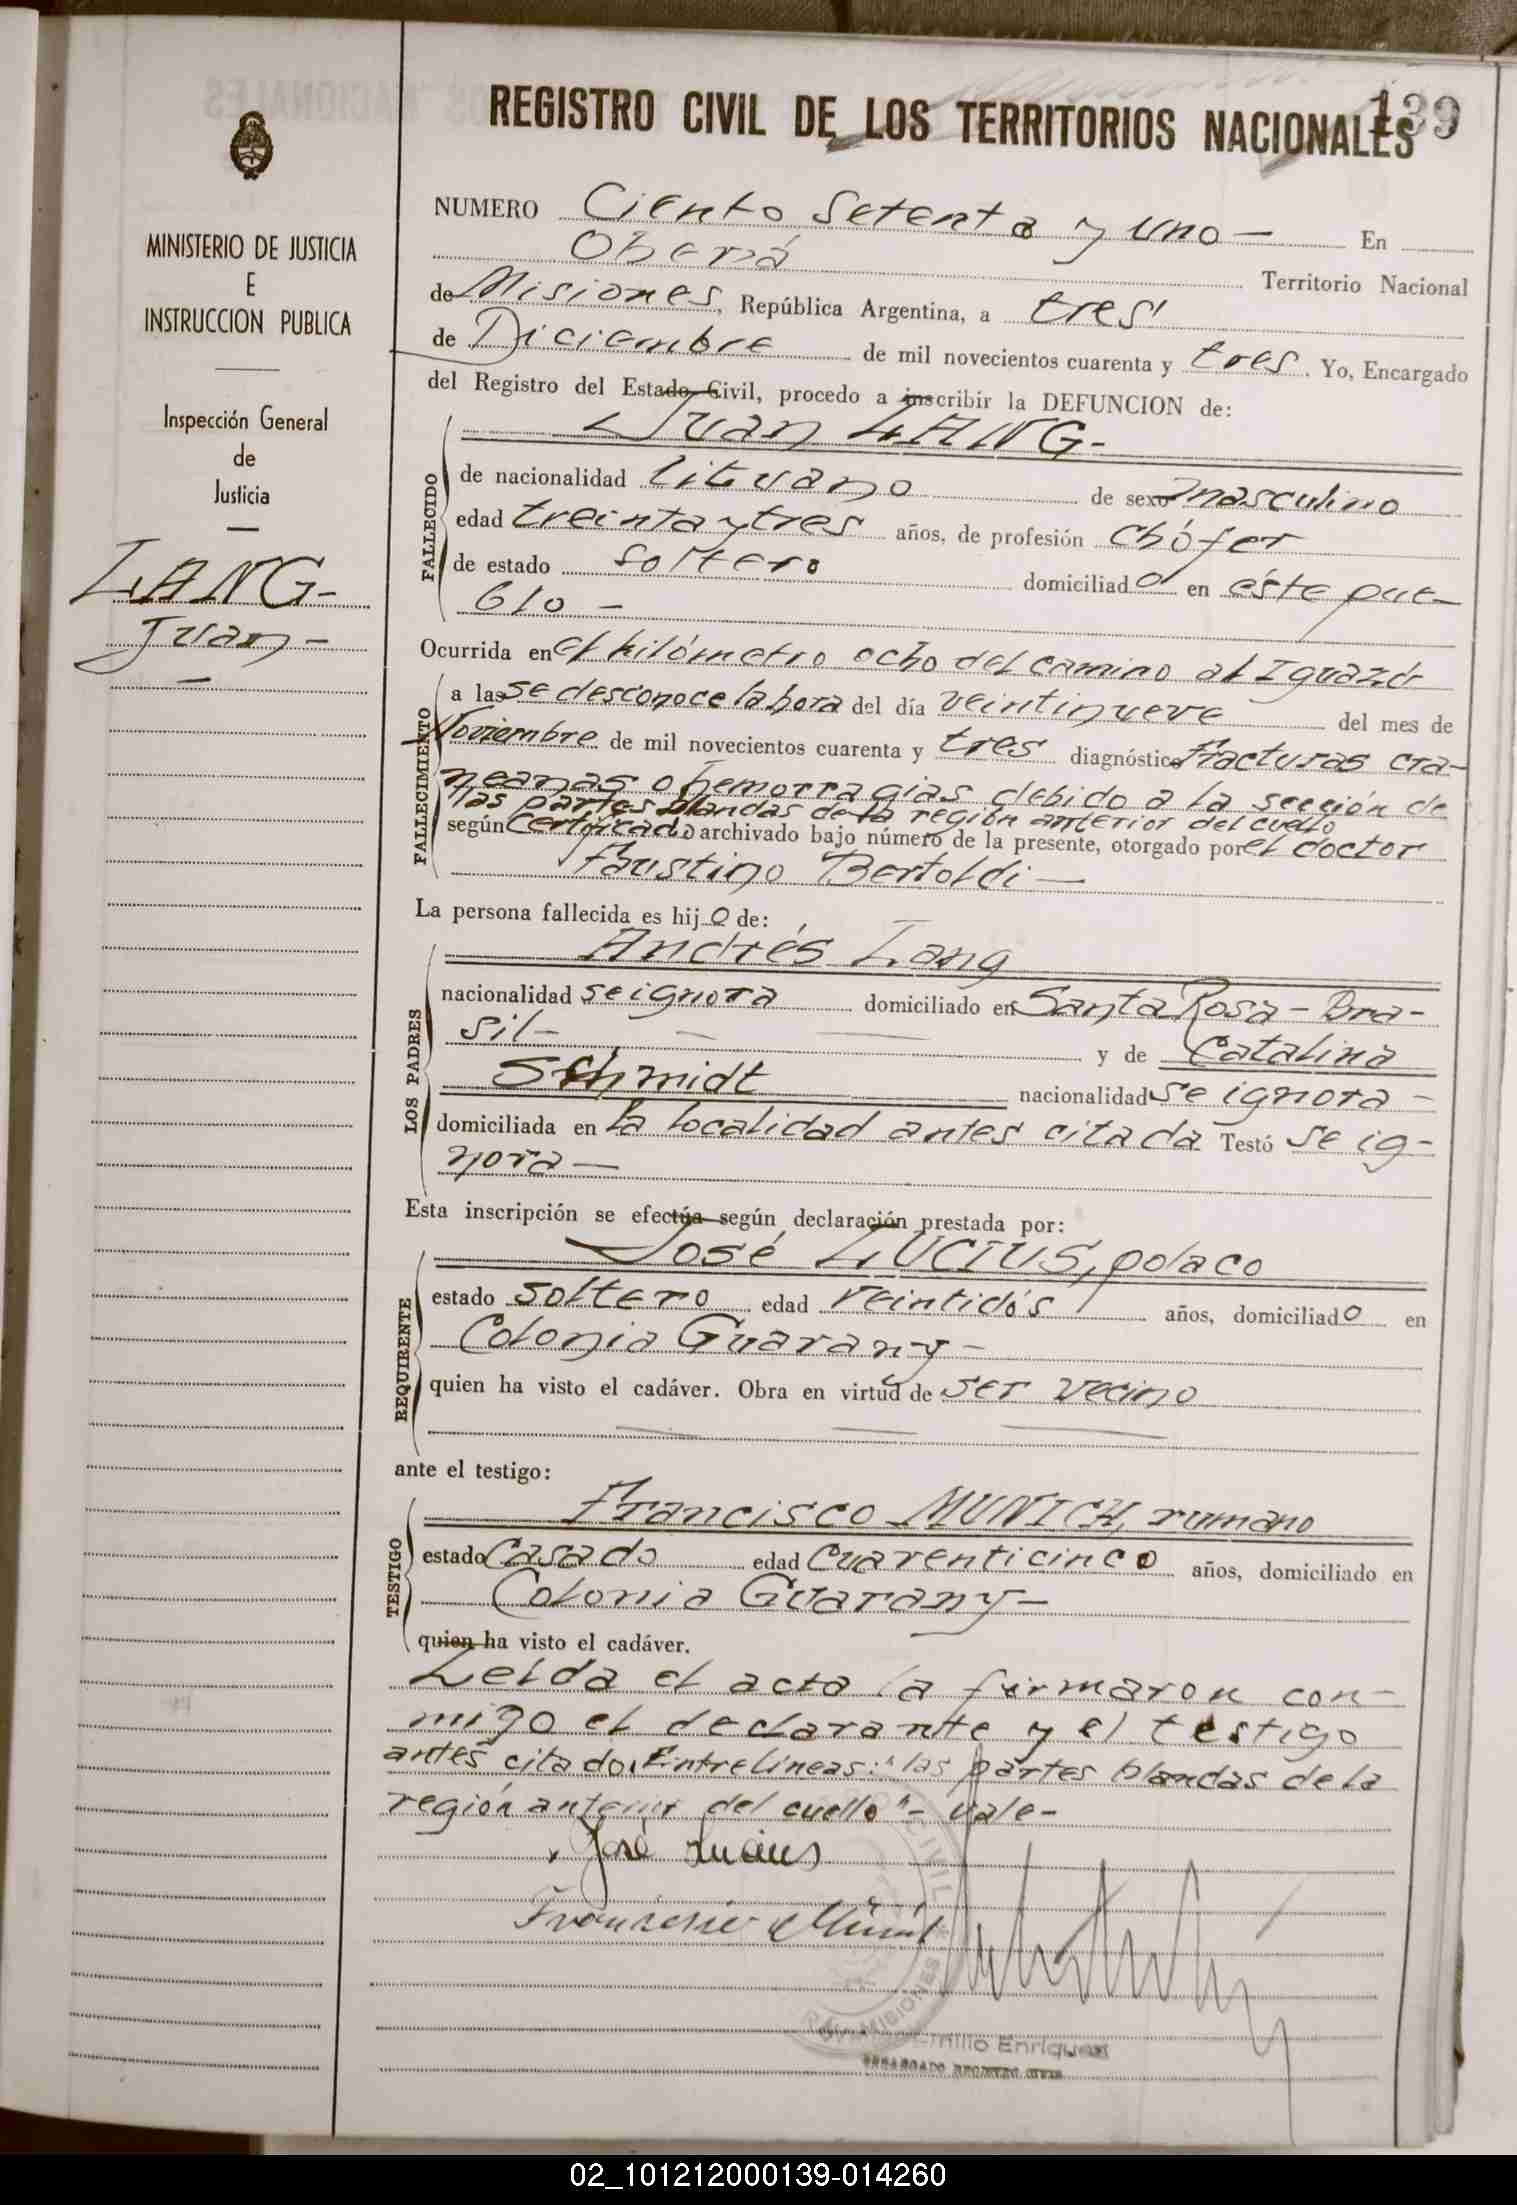 REGISTRO CIVIL DE LOS TERRITORIOS NACIONALES
139
MINISTERIO DE JUSTICIA
E
INSTRUCCION PUBLICA
Inspección General
de
Justicia
LANG-
Juan-
NUMERO Ciento Setenta y uno- En
Oberá Territorio Nacional
de Misiones, República Argentina, a tres
de Diciembre de mil novecientos cuarenta y tres. Yo, Encargado
del Registro del Estado Civil, procedo a inscribir la DEFUNCION de:
Juan LANG-
FALLECIDO
de nacionalidad lituano de sexo masculino
edad treinta y tres años, de profesión Chófer
de estado soltero domiciliado en éste pue-
blo-
Ocurrida en el kilómetro ocho del camino al Iguazú
FALLECIMIENTO
a las se desconoce la hora del día veintinueve del mes de
Noviembre de mil novecientos cuarenta y tres diagnóstico Fracturas cra-
neanas o hemorragias debido a la sección de
las partes blandas de la región anterior del cuello
según Certificado archivado bajo número de la presente, otorgado por el doctor
Faustino Bertoldi-
La persona fallecida es hijo de:
LOS PADRES
Andrés Lang
nacionalidad se ignora domiciliado en Santa Rosa- Bra-
sil- y de Catalina
Schmidt nacionalidad se ignora-
domiciliada en la localidad antes citada Testó se ig-
nora-
Esta inscripción se efectúa según declaración prestada por:
REQUIRENTE
José LUCIUS, polaco
estado soltero edad veintidós años, domiciliado en
Colonia Guarany-
quien ha visto el cadáver. Obra en virtud de ser vecino
ante el testigo:
TESTIGO
Francisco MUNICH, rumano
estado Casado edad Cuarenticinco años, domiciliado en
Colonia Guarany-
quien ha visto el cadáver.
Leída el acta la firmaron con-
migo el declarante y el testigo
antes citado. Entrelíneas: "las partes blandas de la
región anterior del cuello"- vale-
José Lucius
CIVIL
MISIONES
Emilio Enriquez
ENCARGADO REGISTRO CIVIL
02_101212000139-014260